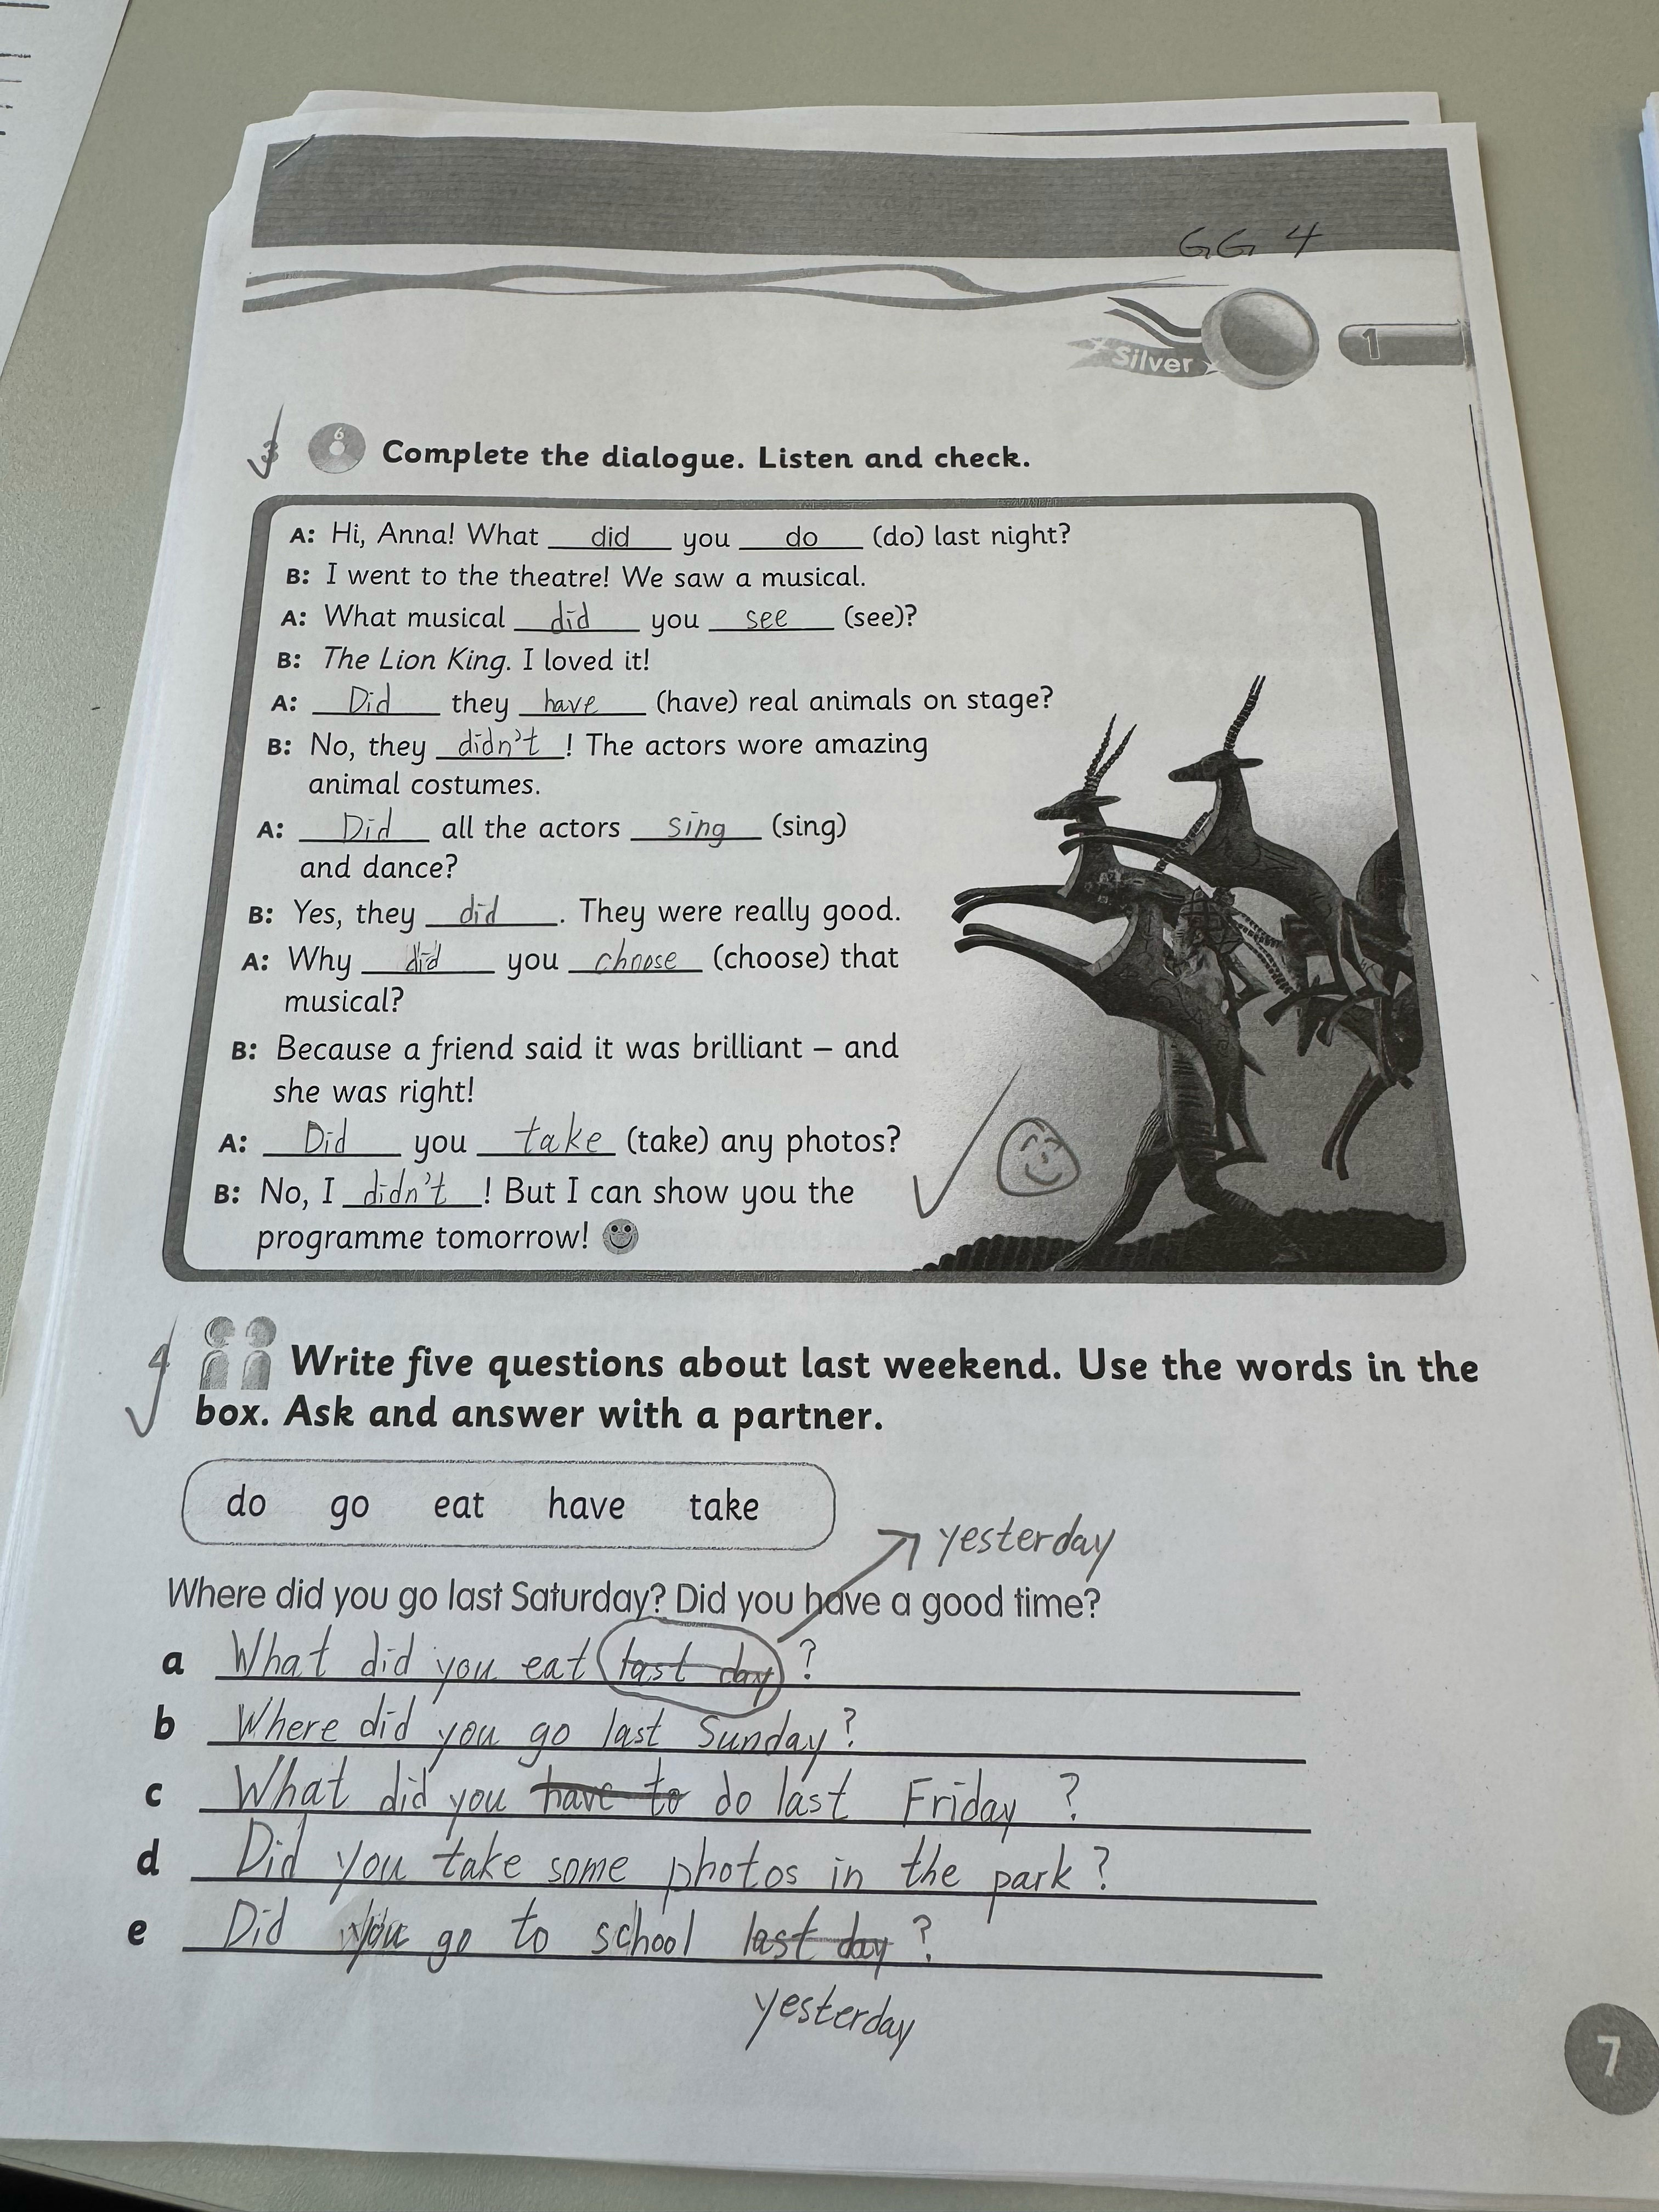 GG 4
Silver 1
3 6 Complete the dialogue. Listen and check.
A: Hi, Anna! What did you do (do) last night?
B: I went to the theatre! We saw a musical.
A: What musical did you see (see)?
B: The Lion King. I loved it!
A: Did they have (have) real animals on stage?
B: No, they didn't! The actors wore amazing
animal costumes.
A: Did all the actors sing (sing)
and dance?
B: Yes, they did. They were really good.
A: Why did you choose (choose) that
musical?
B: Because a friend said it was brilliant – and
she was right!
A: Did you take (take) any photos?
B: No, I didn't! But I can show you the
programme tomorrow!
4 Write five questions about last weekend. Use the words in the
box. Ask and answer with a partner.
do go eat have take
yesterday
Where did you go last Saturday? Did you have a good time?
a What did you eat last day ?
b Where did you go last Sunday?
c What did you have to do last Friday ?
d Did you take some photos in the park?
e Did you go to school last day ?
yesterday
7